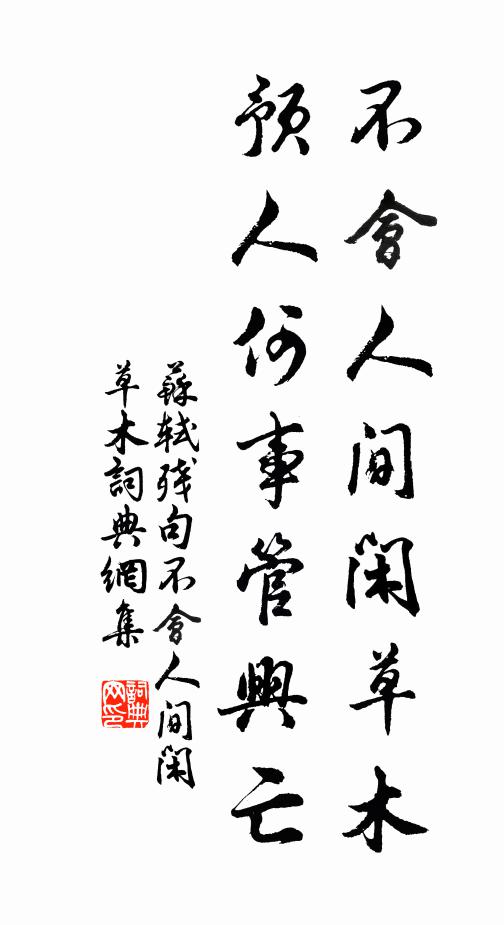 不會人間閑草木
預人何事管興亡
蘇軾殘句不會人間閑
草木詞典網集
詞典
网印